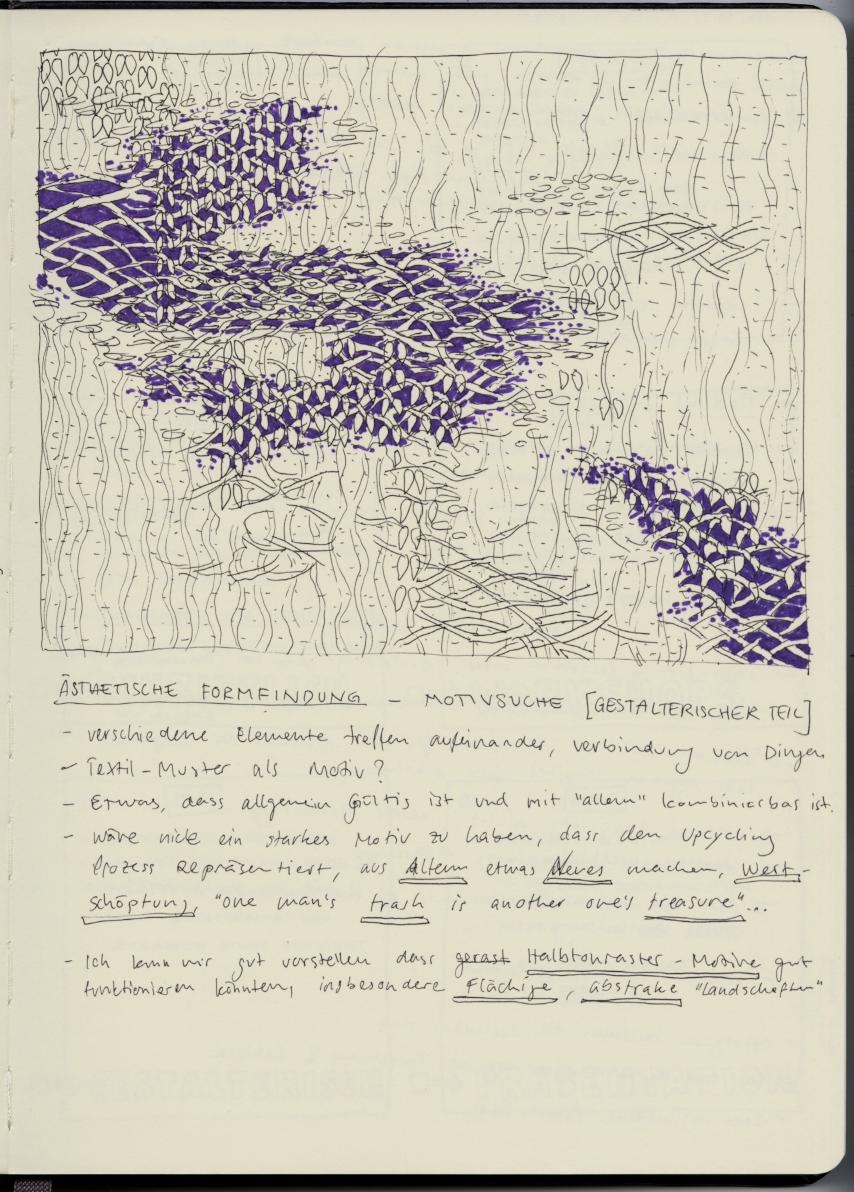 ÄSTHETISCHE FORMFINDUNG – MOTIVSUCHE [GESTALTERISCHER TEIL]
- verschiedene Elemente treffen aufeinander, verbindung von Dingen
- Textil-Muster als Motiv?
- Etwas, dass allgemein Gültig ist und mit "allem" kombinierbar ist.
- wäre nice ein starkes Motiv zu haben, dass den Upcycling
Prozess Repräsentiert, aus Altem etwas Neues machen, Wert-
schöpfung, "one man's trash is another one's treasure"...
- Ich kann mir gut vorstellen dass gerast Halbtonraster-Motive gut
funktionieren könnten, insbesondere Flächige, abstrake "Landschaften"